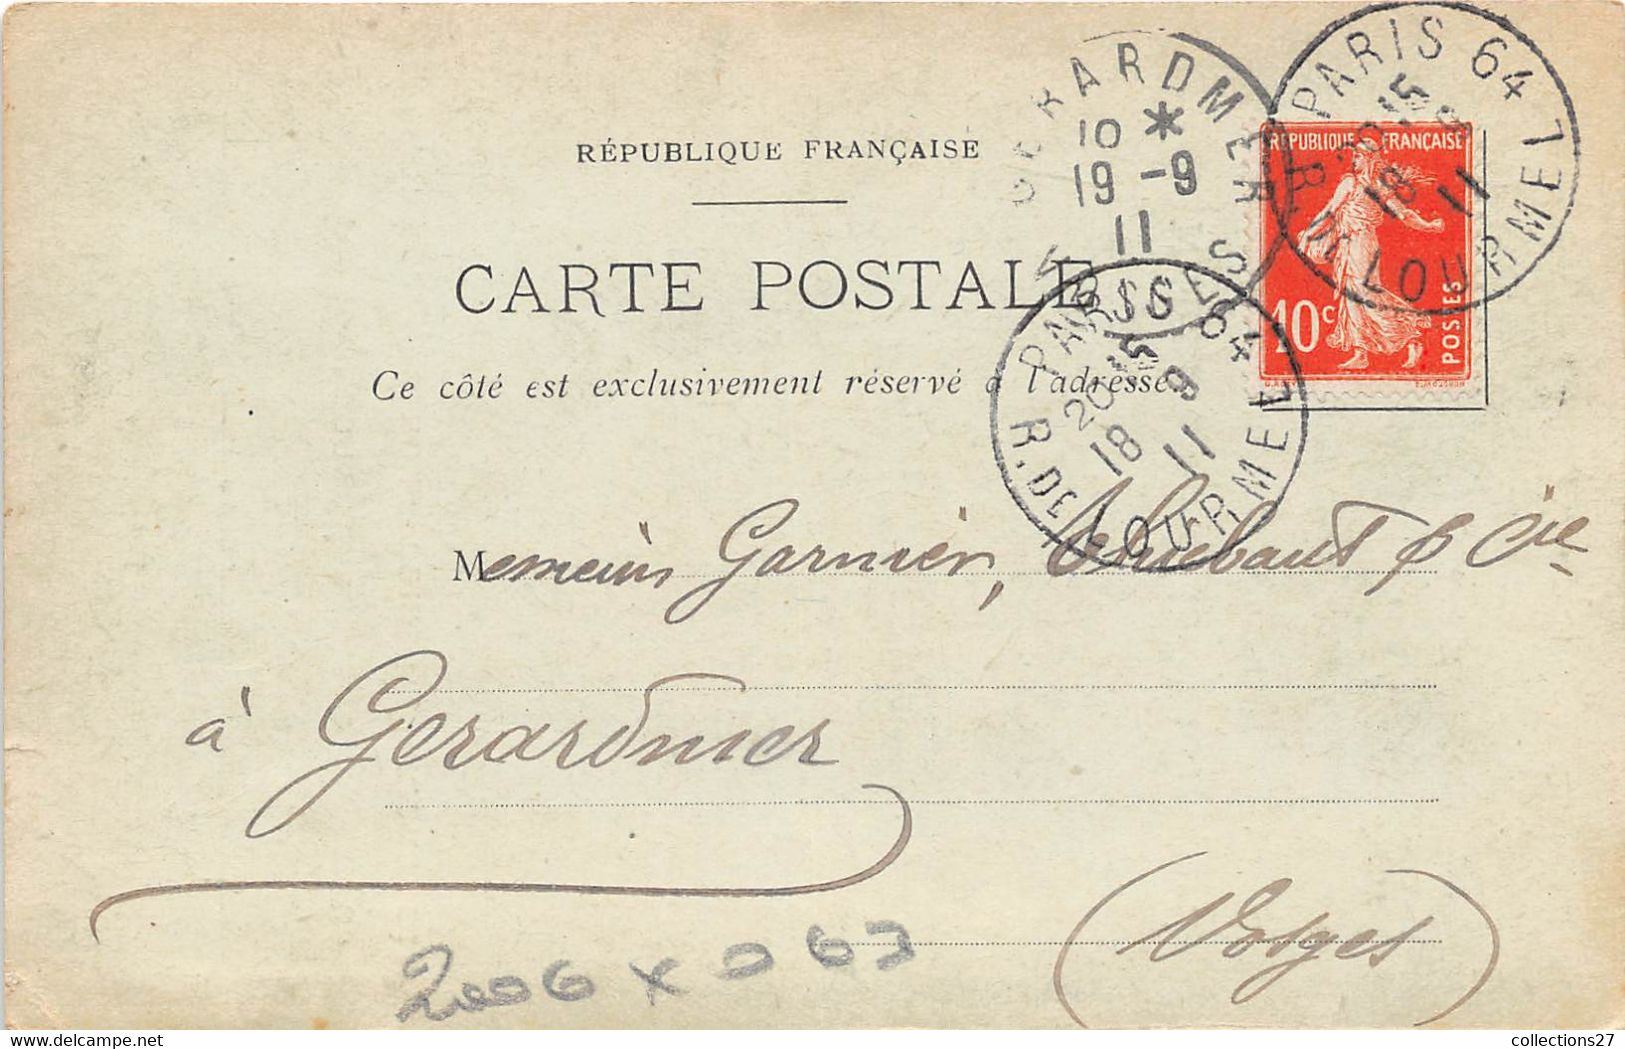 RÉPUBLIQUE FRANÇAISE
CARTE POSTALE
Ce côté est exclusivement réservé à l'adresse
GERARDMER
10 *
19 -9
11
VOSGES
PARIS 64
20 15
18 9
11
R. DE LOURMEL
RÉPUBLIQUE FRANÇAISE
10c
POSTES
PARIS 64
20 15
18 9
11
R. DE LOURMEL
Messieurs Garnier, Thiébaut & Cie
à Gerardmer
(Vosges)
2006 x 063
collections27